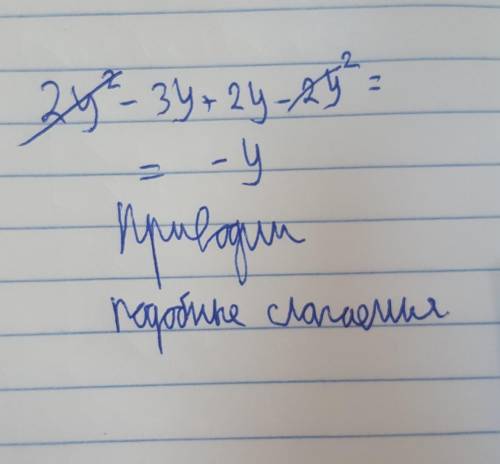 2y² - 3y + 2y - 2y² =
= - y
Приводим
подобные слагаемыя